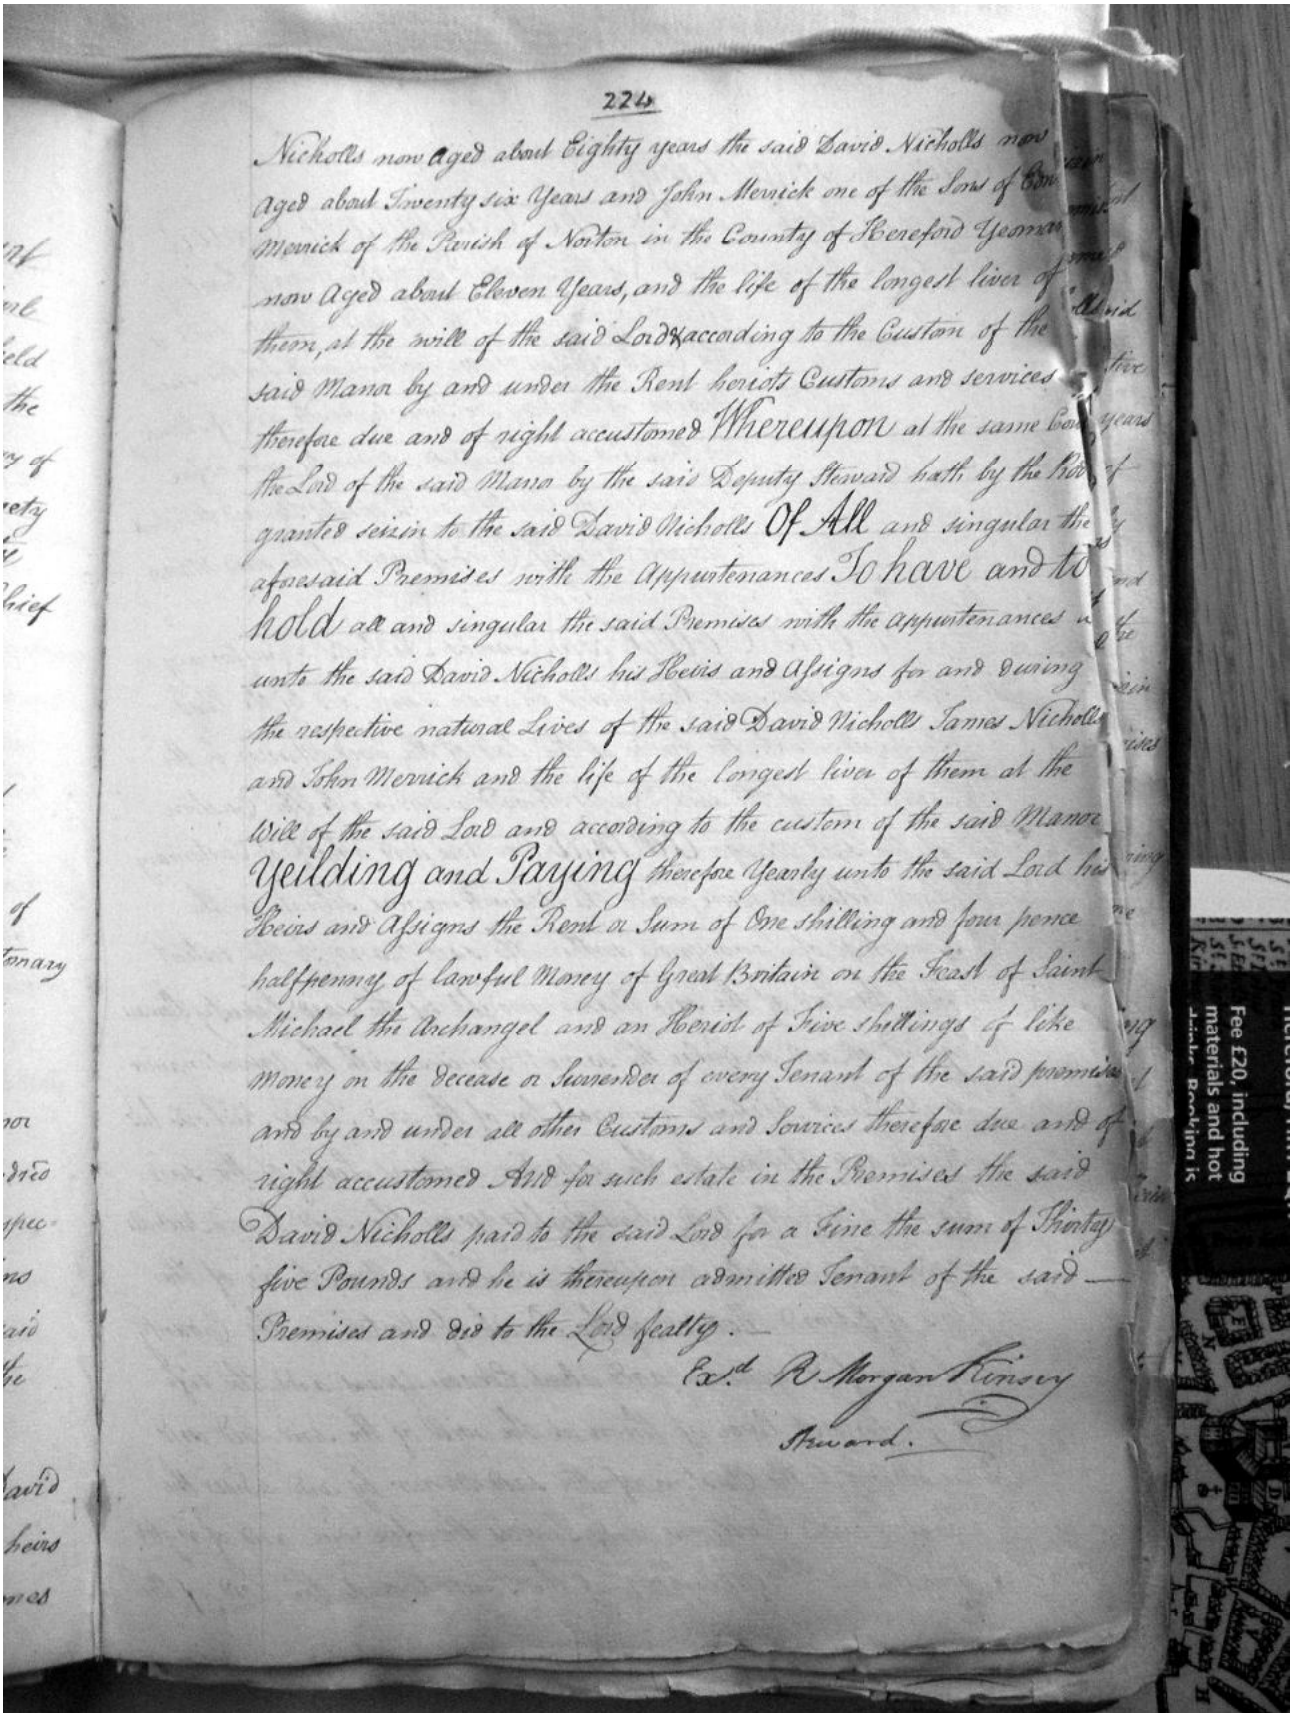 224
Nicholls now Aged about Eighty years the said David Nicholls now
Aged about Twenty six Years and John Merrick one of the Sons of
Merrick of the Parish of Norton in the County of Hereford Yeoman
now Aged about Eleven Years, and the life of the longest liver of
them, at the will of the said Lord & according to the Custom of the
said Manor by and under the Rent heriots Customs and services
therefore due and of right accustomed Whereupon at the same Court
the Lord of the said Manor by the said Deputy Steward hath by the Rod
granted seizin to the said David Nicholls Of All and singular the
aforesaid Premises with the Appurtenances To have and to
hold all and singular the said Premises with the appurtenances
unto the said David Nicholls his Heirs and Assigns for and during
the respective natural Lives of the said David Nicholls James Nicholls
and John Merrick and the life of the longest liver of them at the
Will of the said Lord and according to the custom of the said Manor
Yeilding and Paying therefore Yearly unto the said Lord his
Heirs and Assigns the Rent or Sum of One shilling and four pence
halfpenny of lawful Money of Great Britain on the Feast of Saint
Michael the Archangel and an Heriot of Five shillings of like
Money on the decease or Surrender of every Tenant of the said premises
and by and under all other Customs and Services therefore due and of
right accustomed And for such estate in the Premises the said
David Nicholls paid to the said Lord for a Fine the sum of Thirty
five Pounds and he is thereupon admitted Tenant of the said —
Premises and did to the Lord fealty. —
Exd. R Morgan Kinsey
Steward.
eld
the
of
hief
of
tonary
nor
spec=
said
the
David
heirs
years
Fee £20, including
materials and hot
drinks. Booking is